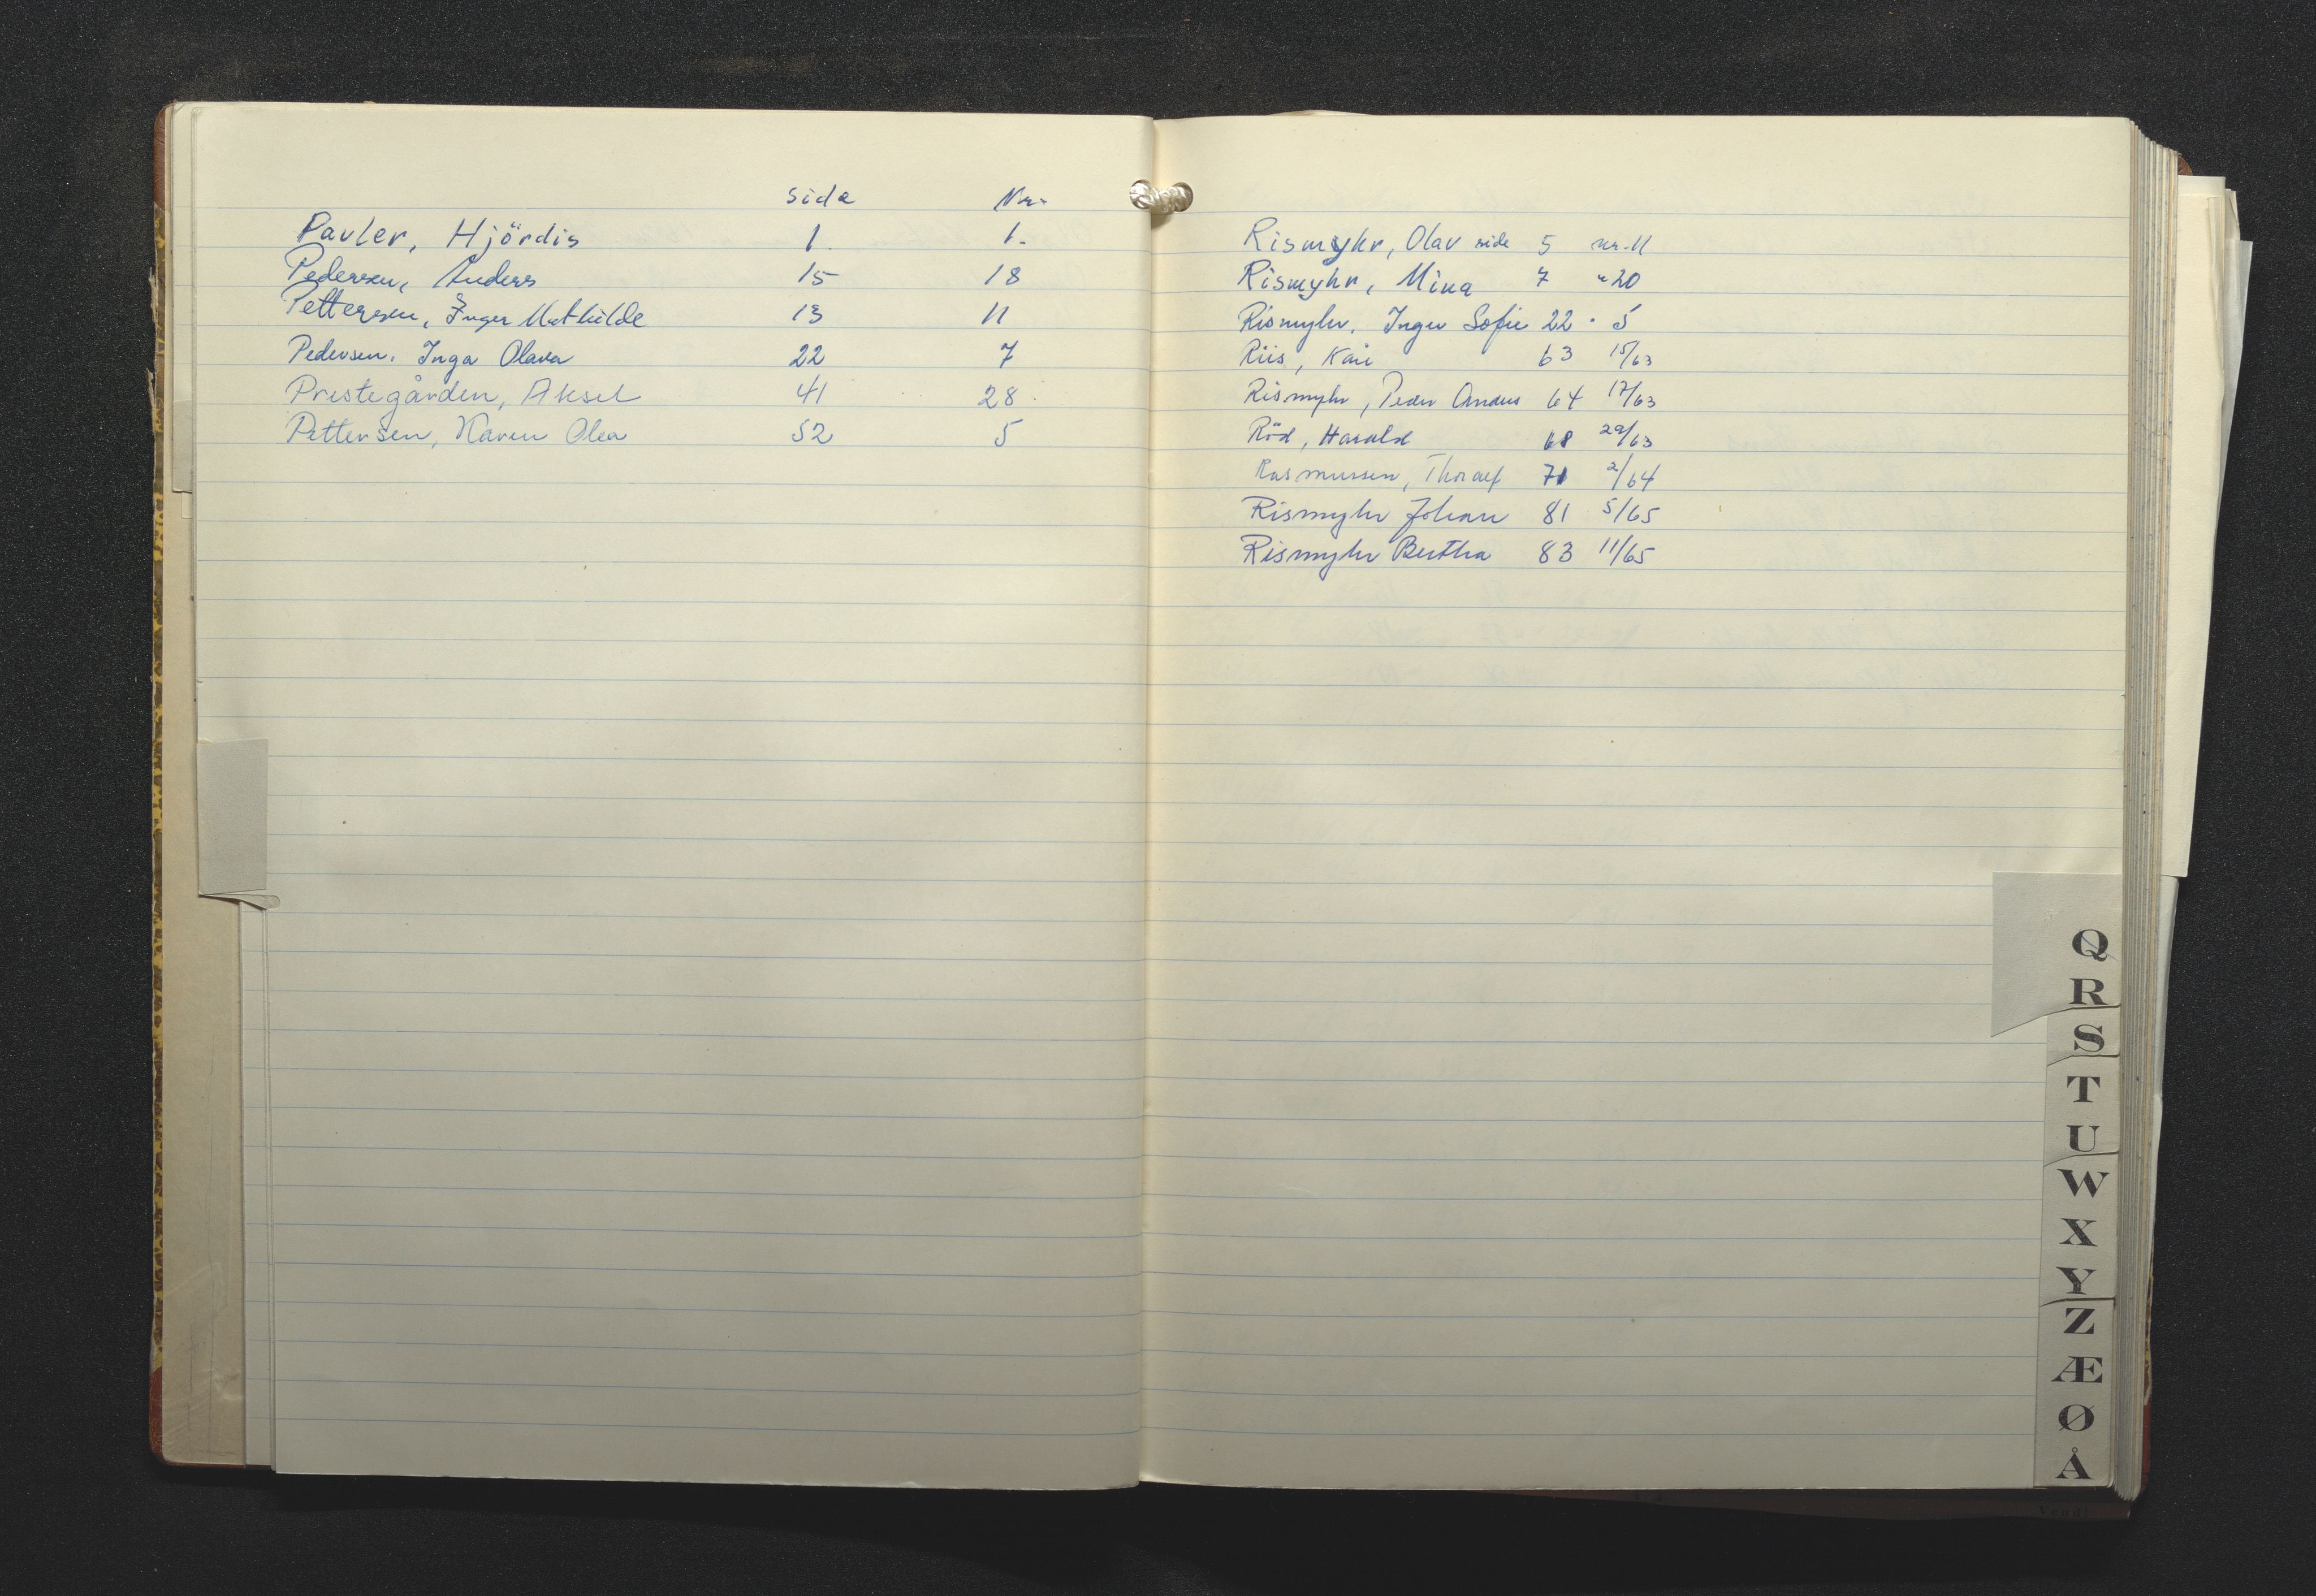 side Nr.
Pavler, Hjördis 1. 1.
Pedersen, Anders 15 18
Pettersen, Inger Mathilde 13 11
Pedersen. Inga Olava 22 7
Prestegården, Aksel 41 28
Pettersen, Karen Olea 52 5
Rismyhr, Olav side 5 nr. 11
Rismyhr, Mina 7 " 20
Rismyhr. Inger Sofie 22 " 5
Riis, Kari 63 15/63
Rismyhr, Peder Anders 64 17/63
Röd, Harald 68 29/63
Rasmussen, Thoralf 71 2/64
Rismyhr Johan 81 5/65
Rismyhr Bertha 83 11/65
Q
R
S
T
U
W
X
Y
Z
Æ
Ø
Å